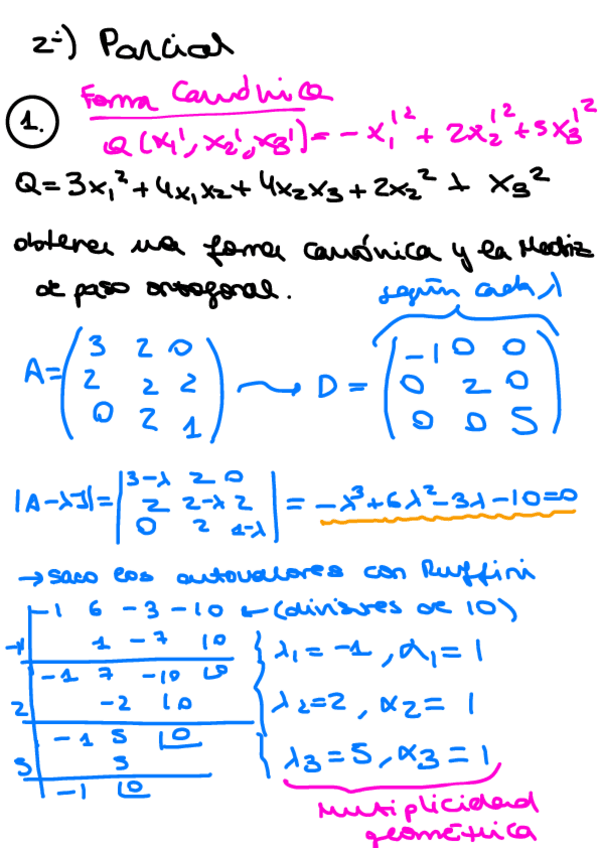 2º) Parcial
Forma Canónica
1.
Q(x₁', x₂', x₃') = -x₁'² + 2x₂'² + 5x₃'²
Q = 3x₁² + 4x₁x₂ + 4x₂x₃ + 2x₂² + x₃²
obtener una forma canónica y la Matriz
de paso ortogonal.
según cada λ
A = (3 2 0
2 2 2
0 2 1) → D = (-1 0 0
0 2 0
0 0 5)
|A-λI| = |3-λ 2 0
2 2-λ 2
0 2 1-λ| = -λ³+6λ²-3λ-10=0
→ saco los autovalores con Ruffini
-1 6 -3 -10 ← (divisores de 10)
-1 1 -7 10
-1 7 -10 0
2 -2 10
-1 5 0
5 5
-1 0
λ₁ = -1, α₁ = 1
λ₂ = 2, α₂ = 1
λ₃ = 5, α₃ = 1
Multiplicidad
geométrica